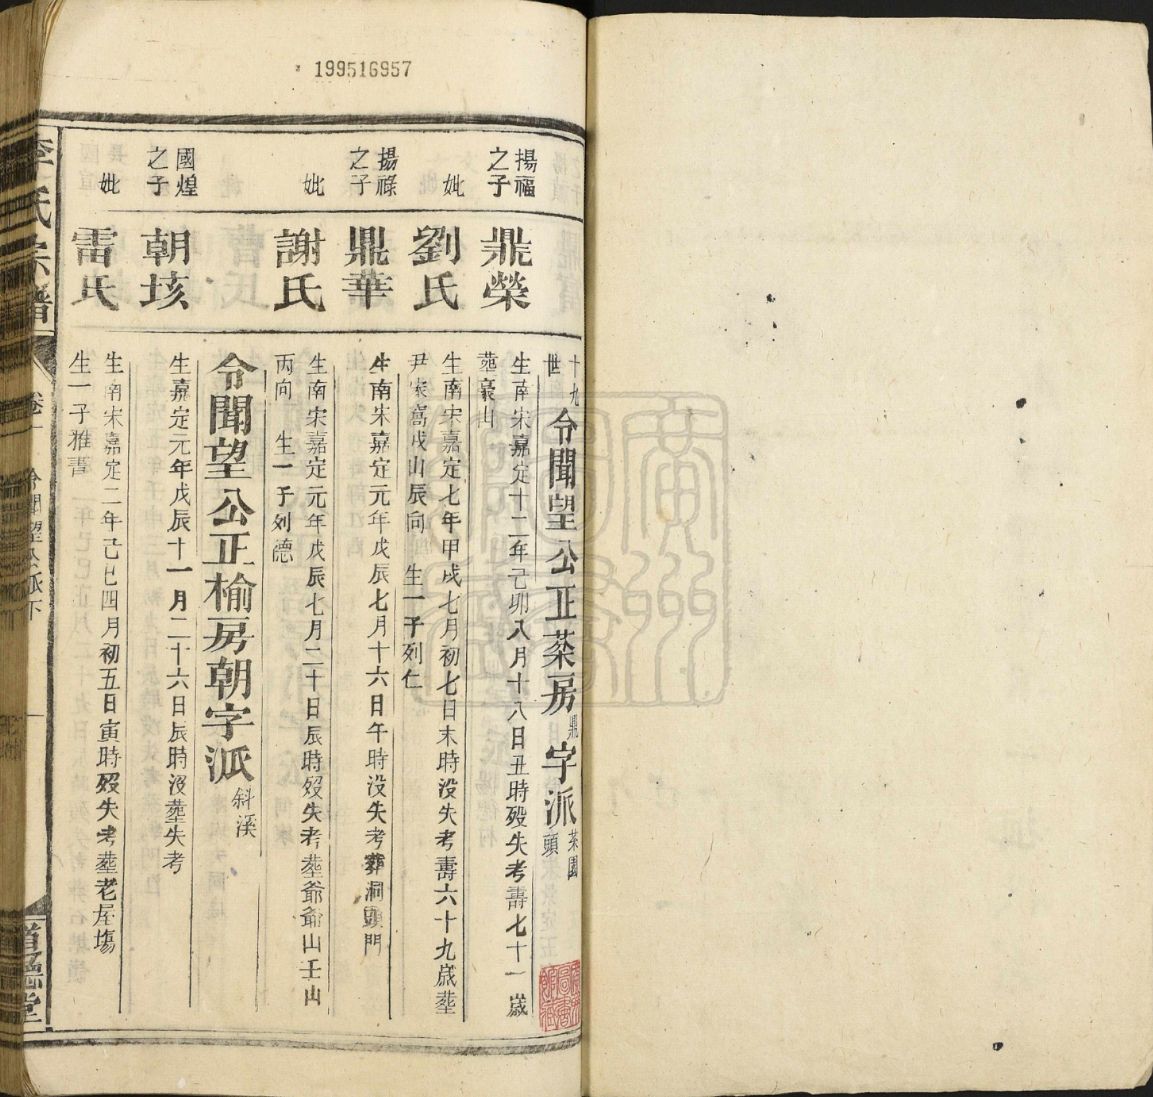 199516957
十九世 令聞望公正茶房鼎字派 茶園頭
揚福之子 鼎榮
生南宋嘉定十二年己卯八月十八日丑時殁失考壽七十一歲
葬豪山
妣 劉氏
生南宋嘉定七年甲戌七月初七日未時没失考壽六十九歲葬
尹家窩戌山辰向 生一子列仁
揚祿之子 鼎華
生南宋嘉定元年戊辰七月十六日午時没失考葬洞頭門
妣 謝氏
生南宋嘉定元年戊辰七月二十日辰時殁失考葬爺爺山壬山
丙向 生一子列德
令聞望公正榆房朝字派 斜溪
國煌之子 朝垓
生嘉定元年戊辰十一月二十六日辰時没葬失考
妣 雷氏
生南宋嘉定二年己巳四月初五日寅時殁失考葬老屋塲
生一子雅書
李氏宗譜 卷一 令聞望公派下 道德堂